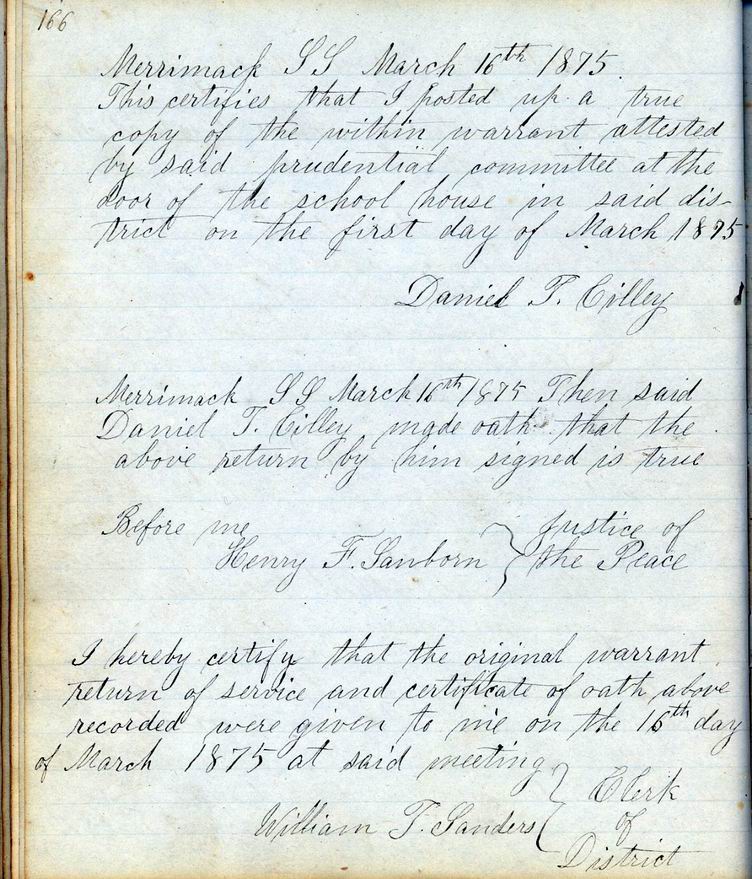 166
Merrimack SS March 16th 1875.
This certifies that I posted up a true
copy of the within warrant attested
by said prudential committee at the
door of the school house in said dis-
trict on the first day of March 1875
Daniel T. Cilley
Merrimack SS March 16th 1875 Then said
Daniel T. Cilley made oath that the
above return by him signed is true
Before me
Henry F. Sanborn } Justice of the Peace
I hereby certify that the original warrant
return of service and certificate of oath above
recorded were given to me on the 16th day
of March 1875 at said meeting
William T. Sanders } Clerk of District